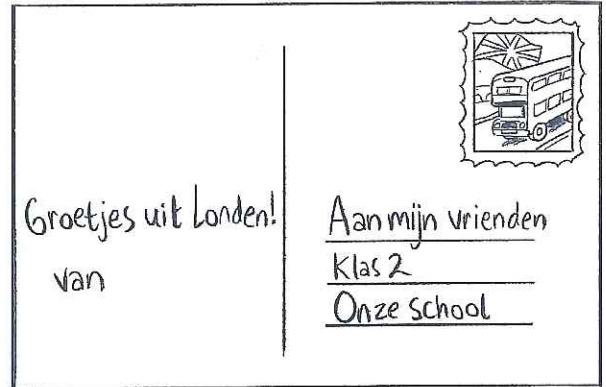 Groetjes uit Londen!
van
Aan mijn vrienden
Klas 2
Onze school